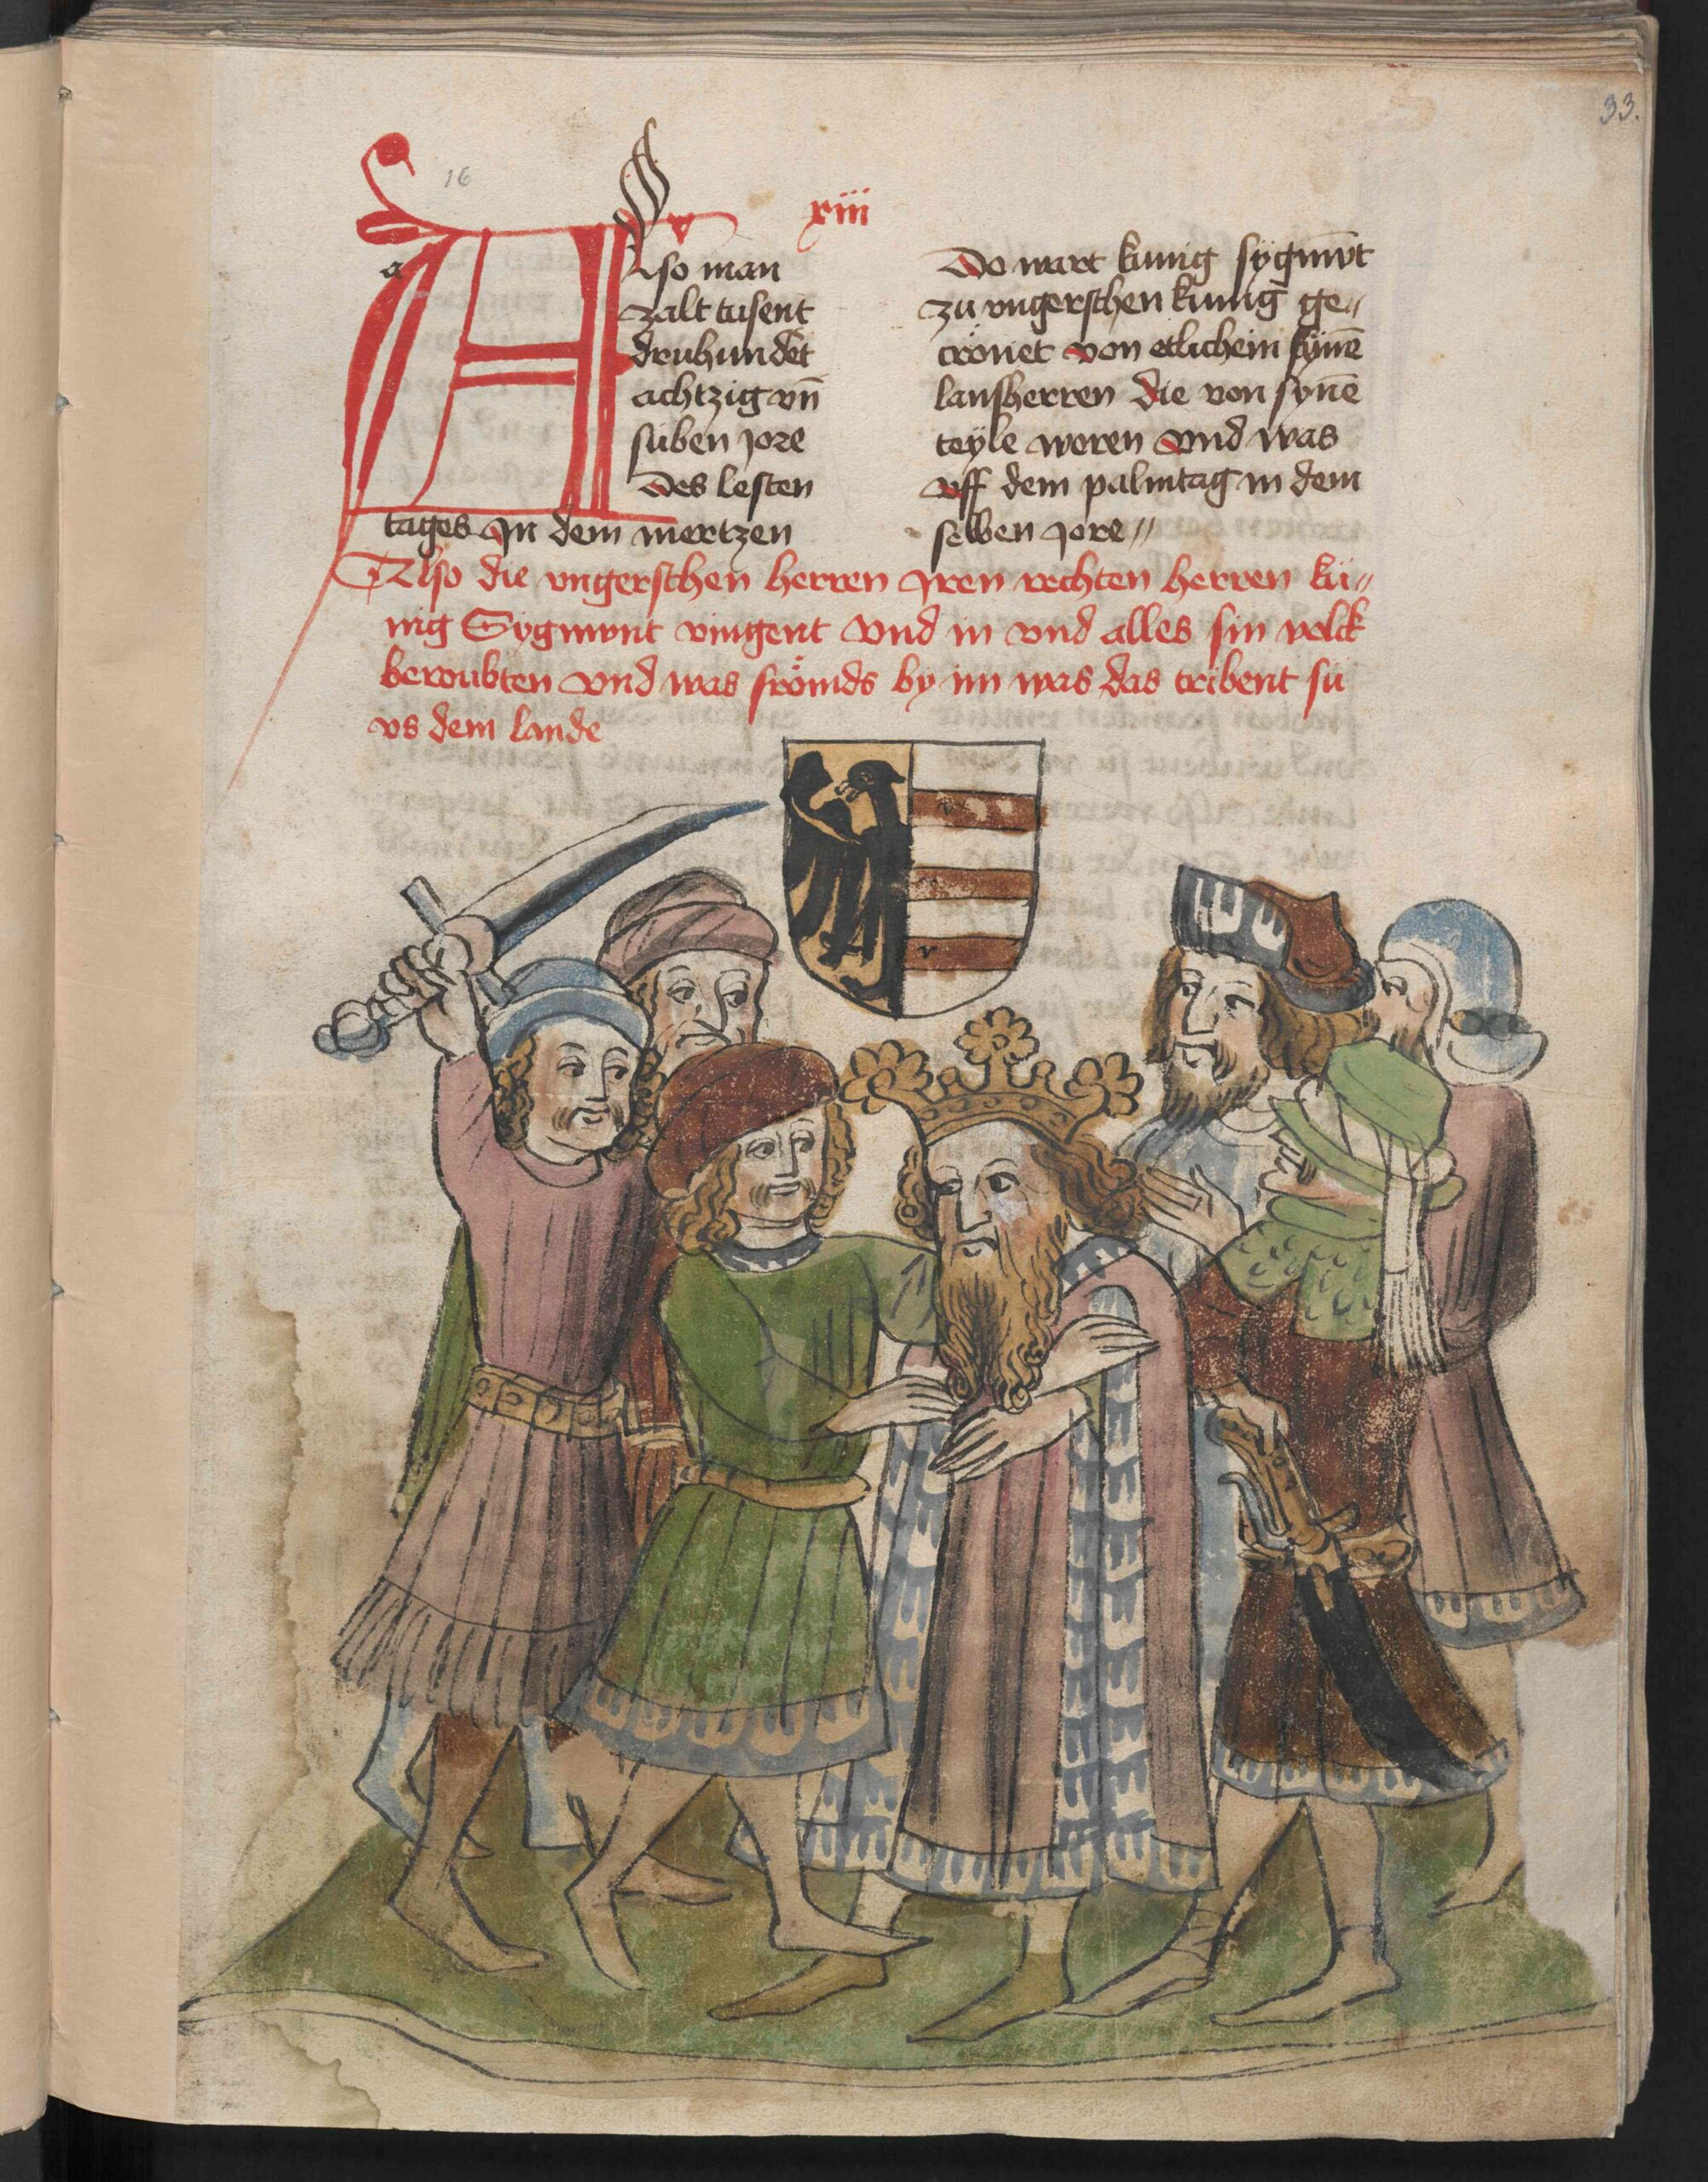 33.
16
xiii
Also man
zalt tusent
druhundet
achtzig vn̄
süben jore
Des lesten
tages Jn dem mertzen
Do wart kunig sygmūt
zu vngerschen kunig ge〃
crönet von etlichein synē
lansherren die von synē
teyle woren Vnd was
vff dem palmtag in dem
selben Jore〃
Also die vngerschen herren Jren rechten herren kü〃
nig Sygmunt vingent Vnd in vnd alles sin volck
beroubten Vnd was frömds by im was das tribent sü
vs dem lande